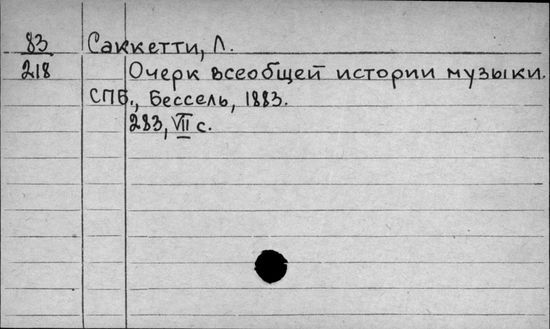 83 Саккетти, Л.
218 Очерк всеобщей истории музыки.
СПБ., Бессель, 1883.
283, VII с.